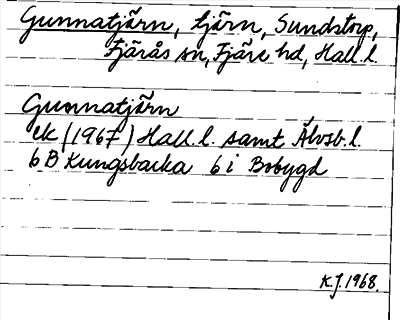 Gunnatjärn, tjärn, Sundstorp,
Fjärås sn, Fjäre hd, Hall. l.
Gunnatjärn
ek (1967) Hall. l. samt Älvsb. l.
6 B Kungsbacka 6 i Bobygd
K.J. 1968.